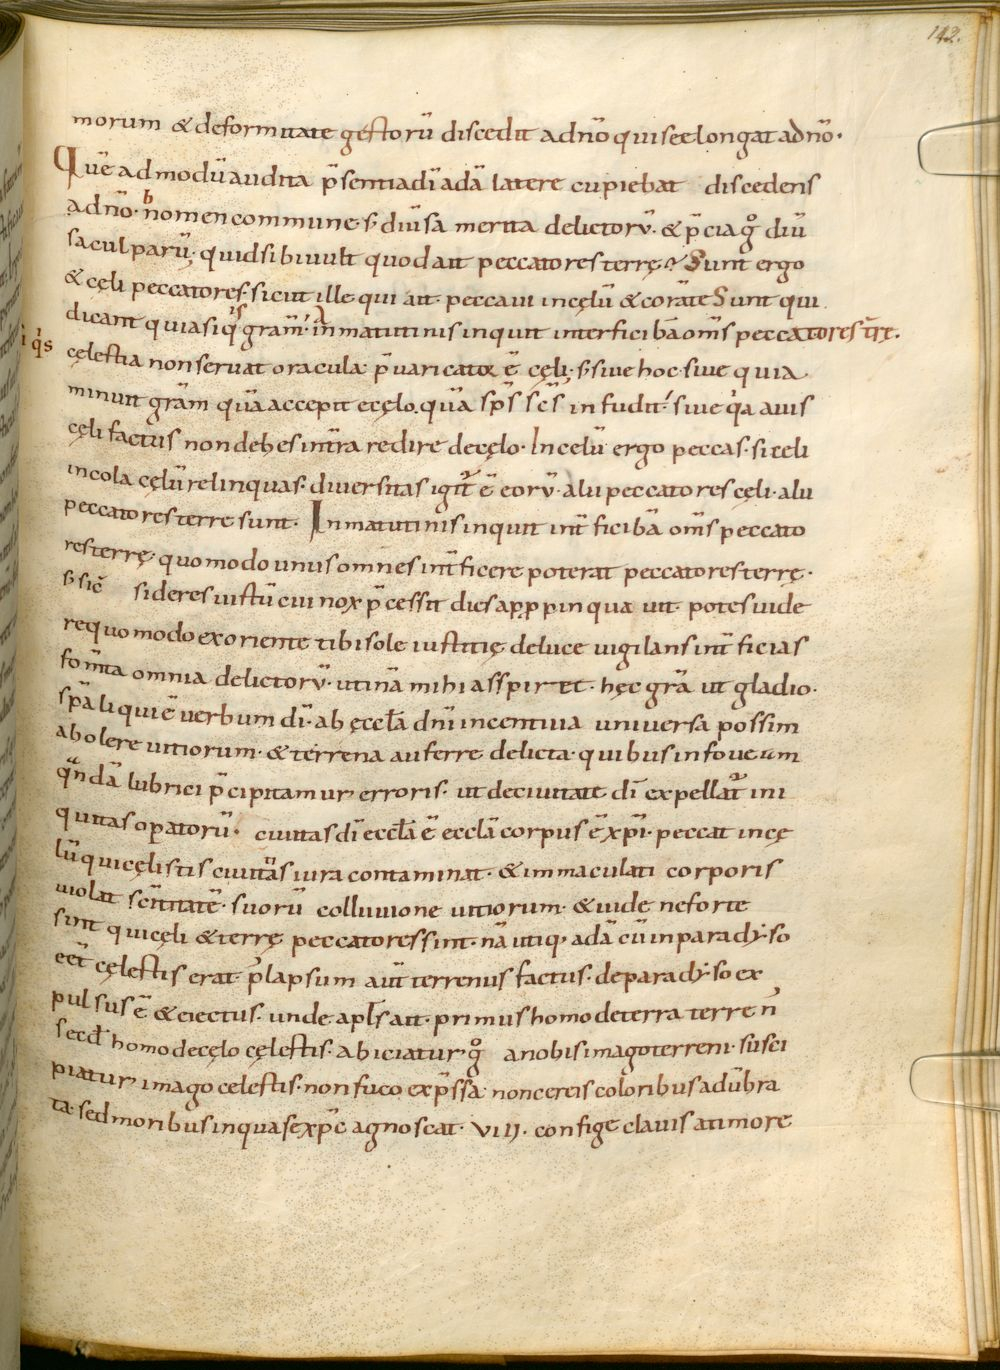 142.
morum & deformitate gestorū discedit adnō qui seelongat adnō.
Quē ad modū audita p̄sentia dī adā latere cupiebat discedens
adnō. nomen commune. s; diūsa merita delictorū. & p̄cia gº diū
sa culparū. quid sibi uult quod ait peccatores terrę. Sunt ergo
& cęli peccatores. sicut ille qui ait. peccaui in cęlū & corā te Sunt qui
dicant quia siqis grām. in matutinis inquit interficibā om̄s peccatores t̄rę.
i qⁱs
cęlestia non seruat oracula p̄uaricator ē cęli. s; siue hoc. siue quia
minuit grām quā accepit ecęlo. quā sp̄s sc̄s infudit. siue qⁱa auis
cęli factus non debes in t̄ra redire decęlo. In celū ergo peccas. si celi
incola cęlū relinquas. diuersitas igit̄ ē eorū. alii peccatores cęli. alii
peccatores terre sunt. In matutinis inquit int̄ficibā om̄s peccato
res terrę. quomodo unus omnes int̄ficere poterat peccatores terrę.
s; sic̄ sideres iustū cui nox p̄cessit dies appinquauit. potes uide
re quomodo exoriente tibi sole iustitię deluce uigilans int̄ficias
fom̄ta omnia delictorū. utinā mihi asspiret. hęc grā ut gladio.
sp̄ali qui ē uerbum dī. ab ęccl̄a dn̄i incentiua uniuersa possim
abolere uitiorum. & terrena auferre delicta. quibus in foueam
qⁿdā lubrici p̄cipitamur erroris. ut deciuitate dī expellat̄ ini
quitas opatorū. ciuitas dī eccl̄a ē eccl̄a corpus ē xp̄i. peccat in cę
lū qui cęlistis ciuitas iura contaminat. & immaculati corporis
uiolat sc̄titatē. suorū colluuione uitiorum. & uide ne forte
sint qui cęli & terrę peccatores sint. nā utiq; adā cū in paradyso
eēt cęlestis erat. p̄ lapsum aut̄ terrenus factus. de paradyso ex
pulsus ē & eiectus. unde apl̄s ait. primus homo deterra terren̄
secd̄ homo decęlo cęlestis. abiciatur gº anobis imago terreni. susci
piatur imago celestis. non fuco exp̄ssa non cereis coloribus adūbra
ta. sed moribus in quasexp̄c agnoscat. VIII. confige clauis atimore